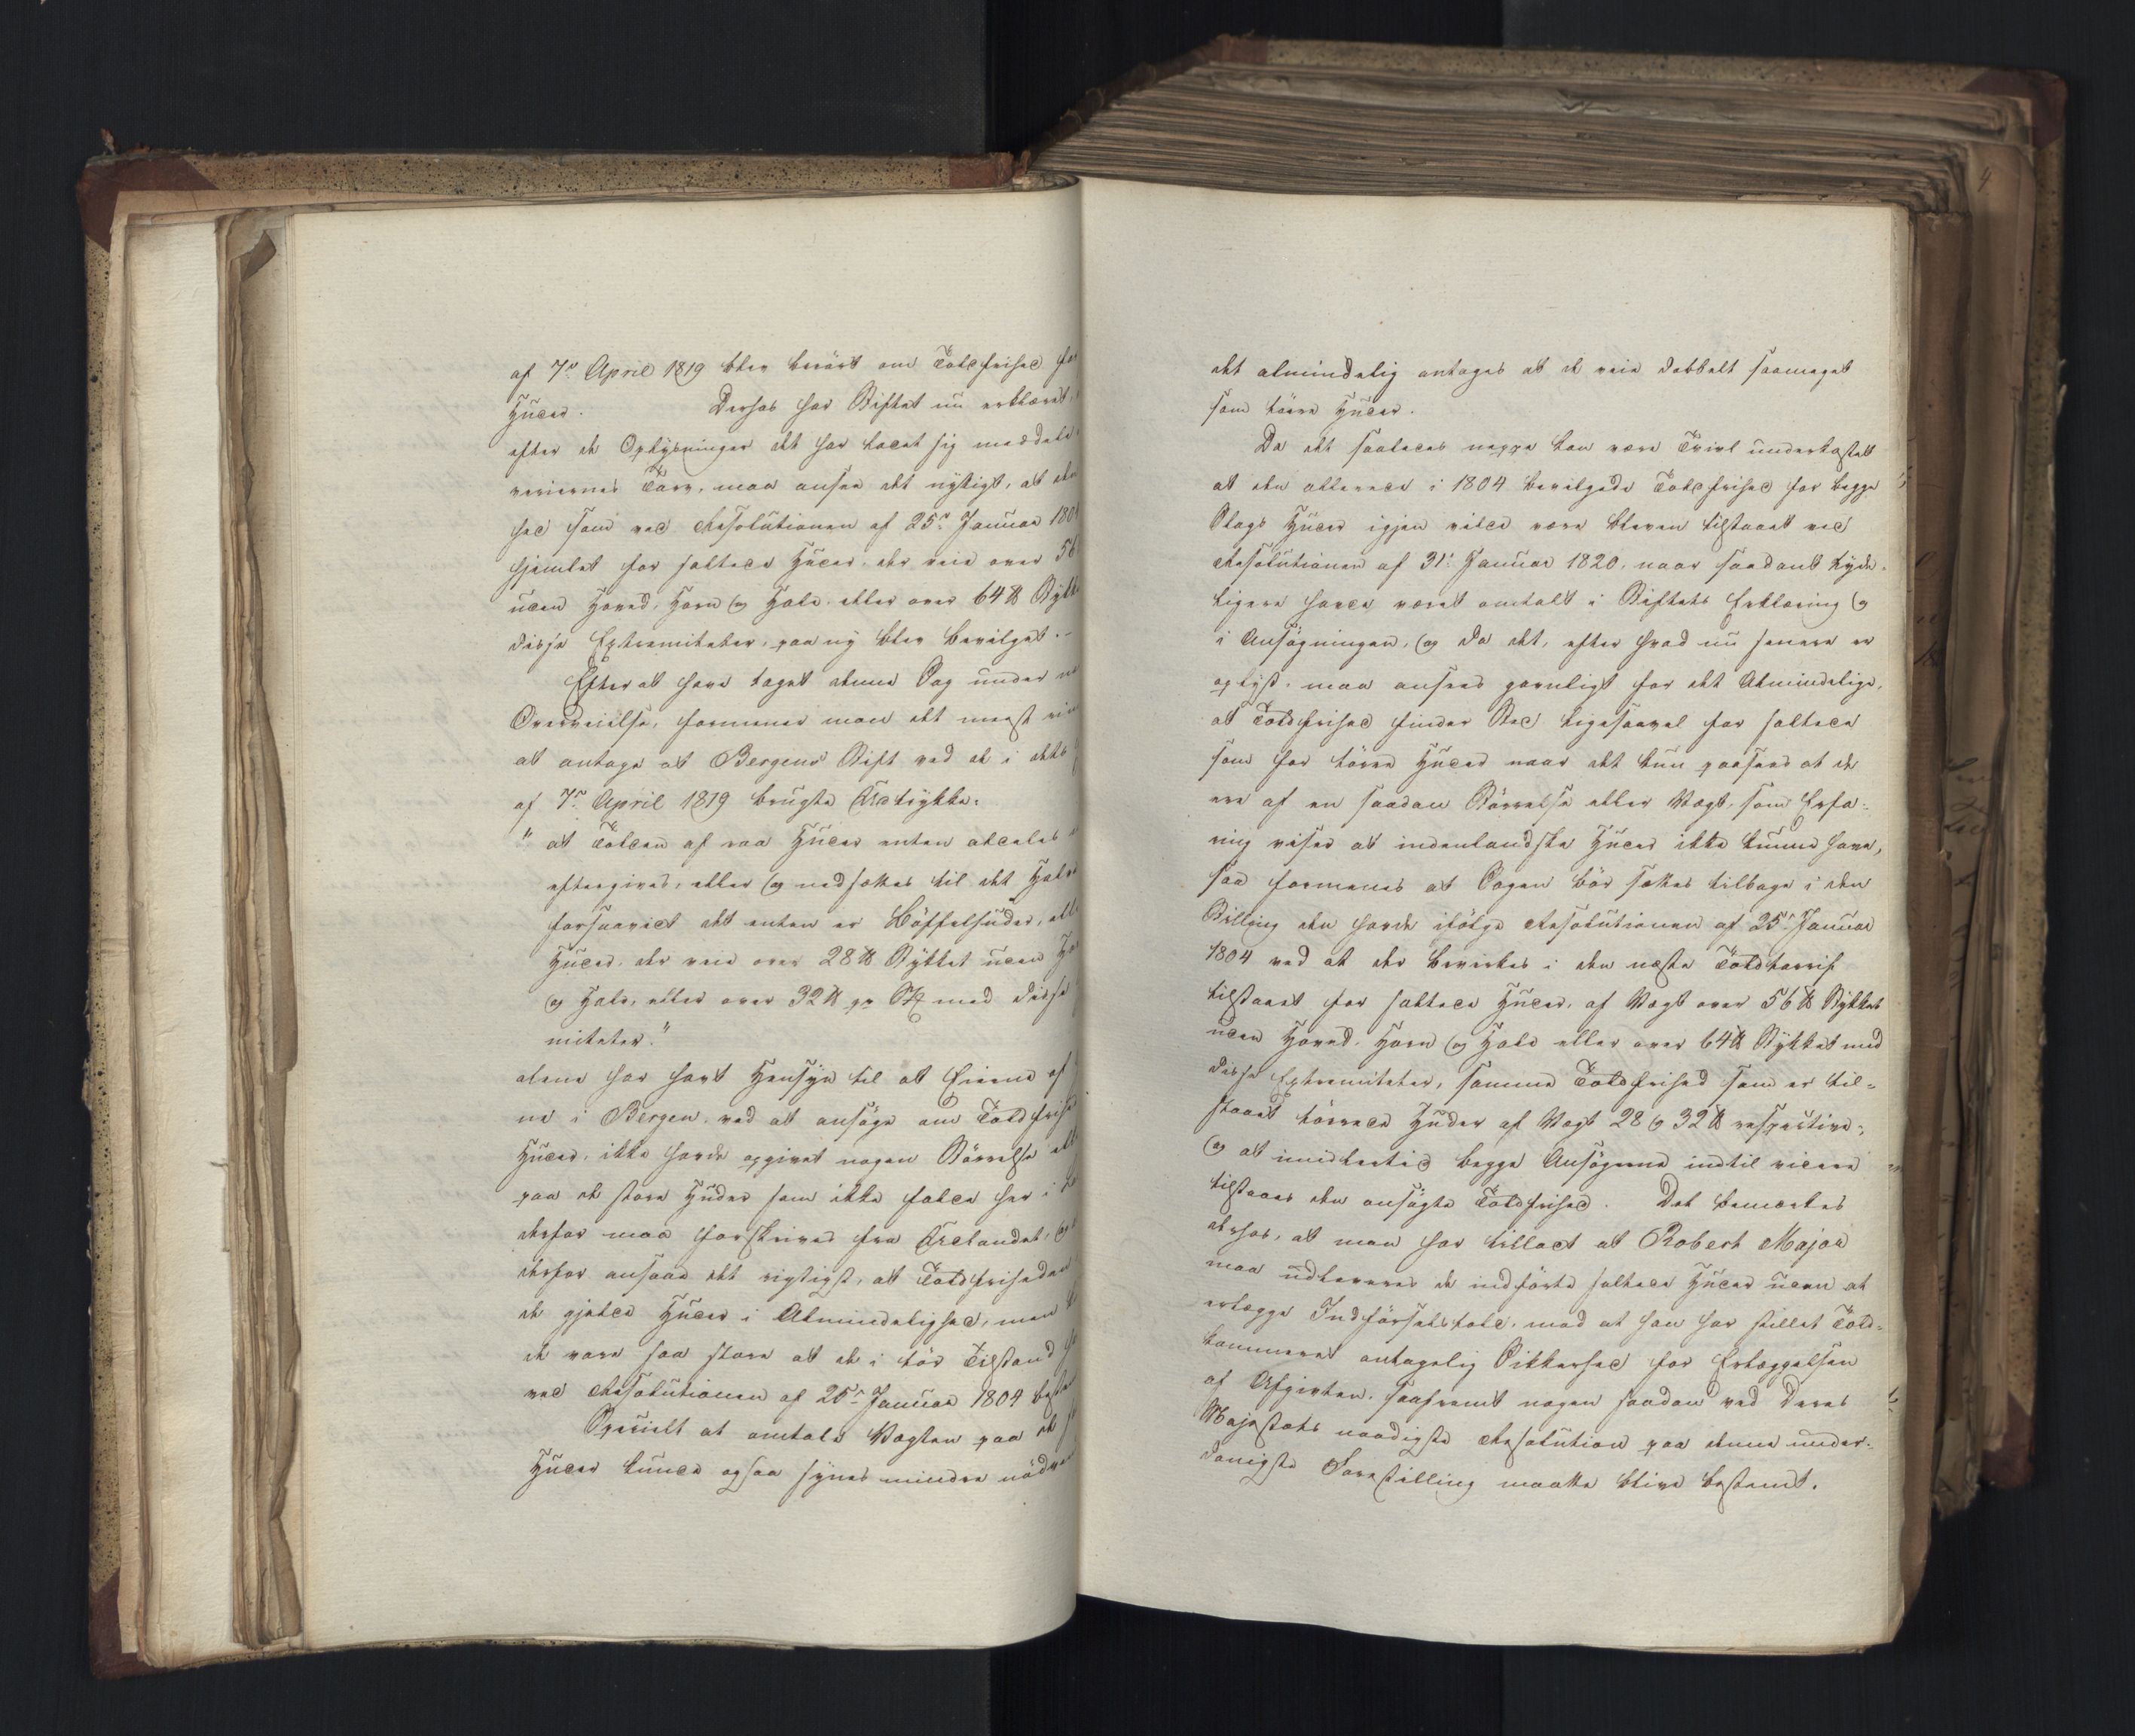 af 7de April 1819 blev berört om Toldfrihed for
Huder. Derhos har Stiftet nu erklæret,
efter de Oplysninger det har ladet sig meddele
veriernes Tarv, maa ansee det nyttigt, at den
hed som ved Resolutionen af 25de Januar 1804
hjemlet for saltede Huder, der veie over 56
uden Hoved, Horn og Hale, eller over 64 ℔ Stykket
disse Extremiteter, paa ny blev bevilget.
Efter at have taget denne Sag under
Overveielse, formener man det meest
at antage at Bergens Stift ved de i dets
af 7de April 1819 brugte Udtrykke:
"at Tolden af raa Huder enten aldeles
eftergives, eller og nedsættes til det Halve
forsaavidt det enten er Böffelhuder, eller
Huder, der veie over 28 ℔ Stykket uden
og Hale, eller over 32 ℔ pr Stk med disse
miteter."
alene har havt Hensyn til at Eierne af
ne i Bergen, ved at ansöge om Toldfrihed
Huder, ikke havde opgivet nogen Störrelse eller
paa de store Huder som ikke falde her i
derfor maa forskrives fra Udlandet, og
derfor ansaae det rigtigst, at Toldfriheden
de gjaldt Huder i Almindelighed, men
de vare saa store at de i tör Tilstand
ved Resolutionen af 25de Januar 1804
Specielt at omtale Vægten paa de
Huder kunde ogsaa synes mindre
det almindelig antages at de veie dobbelt saameget
som törre Huder.
Da det saaledes neppe kan være Tvivl underkastet
at den allerede i 1804 bevilgede Toldfrihed for begge
Slags Huder igjen vilde være bleven tilstaaet ved
Resolutionen af 31te Januar 1820, naar saadant tyde-
ligere havde været omtalt i Stiftets Erklæring og
i Ansögningen, og da det, efter hvad nu senere er
oplyst, maa ansees gavnligt for det Almindelige,
at Toldfrihed finder Sted ligesaavel for saltede
som for törre Huder naar det kun paasees at de
ere af en saadan Störrelse eller Vægt, som Erfa-
ring viser at indenlandske Huder ikke kunne have,
saa formenes at Sagen bör sættes tilbage i den
Stilling den havde ifölge Resolutionen af 25de Januar
1804 ved at der bevirkes i den næste Toldtarif
tilstaaet for saltede Huder, af Vægt over 56 ℔ Stykket
uden Hoved, Horn og Hale eller over 64 ℔ Stykket med
disse Extremiteter, samme Toldfrihed som er til-
staaet törrede Huder af Vægt 28 og 32 ℔ respective,
og at imidlertid begge Ansögerne indtil videre
tilstaaes den ansögte Toldfrihed. Det bemærkes
derhos, at man har tilladt at Robert Major
maa udleveres de indförte saltede Huder uden at
erlægge Indförselstold, mod at han har stillet Told-
kammeret antagelig Sikkerhed for Erlæggelsen
af Afgivten, saafremt nogen saadan ved Deres
Majestæts naadigste Resolution paa denne under-
danigste Forestilling maatte blive bestemt.